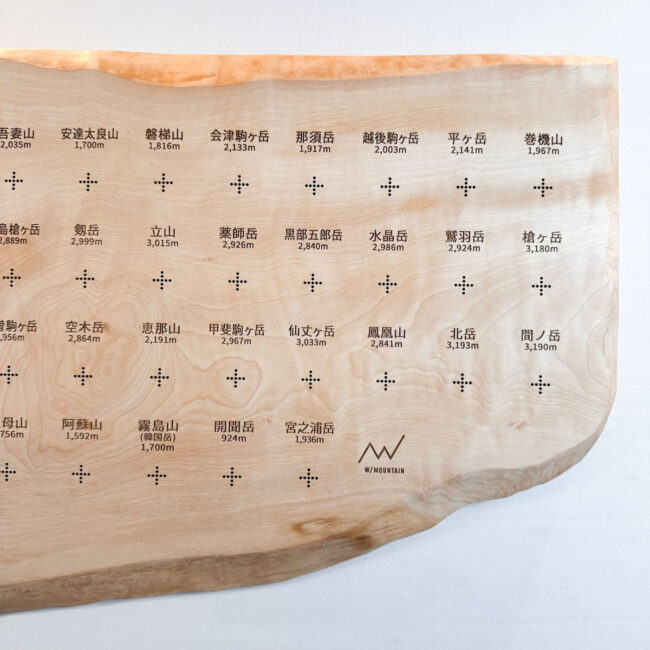 吾妻山 安達太良山 磐梯山 会津駒ヶ岳 那須岳 越後駒ヶ岳 平ヶ岳 巻機山
2,035m 1,700m 1,816m 2,133m 1,917m 2,003m 2,141m 1,967m
島槍ヶ岳 剱岳 立山 薬師岳 黒部五郎岳 水晶岳 鷲羽岳 槍ヶ岳
2,889m 2,999m 3,015m 2,926m 2,840m 2,986m 2,924m 3,180m
駒ヶ岳 空木岳 恵那山 甲斐駒ヶ岳 仙丈ヶ岳 鳳凰山 北岳 間ノ岳
,956m 2,864m 2,191m 2,967m 3,033m 2,841m 3,193m 3,190m
母山 阿蘇山 霧島山 開聞岳 宮之浦岳
756m 1,592m (韓国岳) 924m 1,936m
1,700m
W/MOUNTAIN